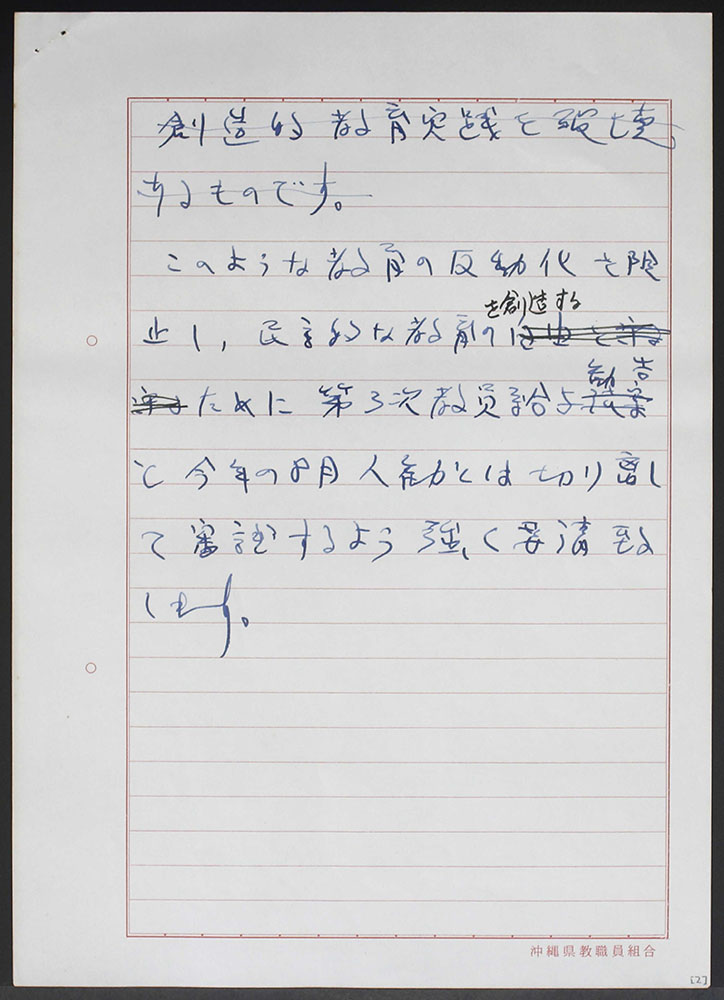 創造的教育実践を破壊
するものです。
このような教育の反動化を阻
を創造する
止し、民主的な教育の自由を守る
勧告
ために第3次教員給与
と今年の8月人勧とは切り離し
て審議するよう強く要請致
します。
沖縄県教職員組合
[2]